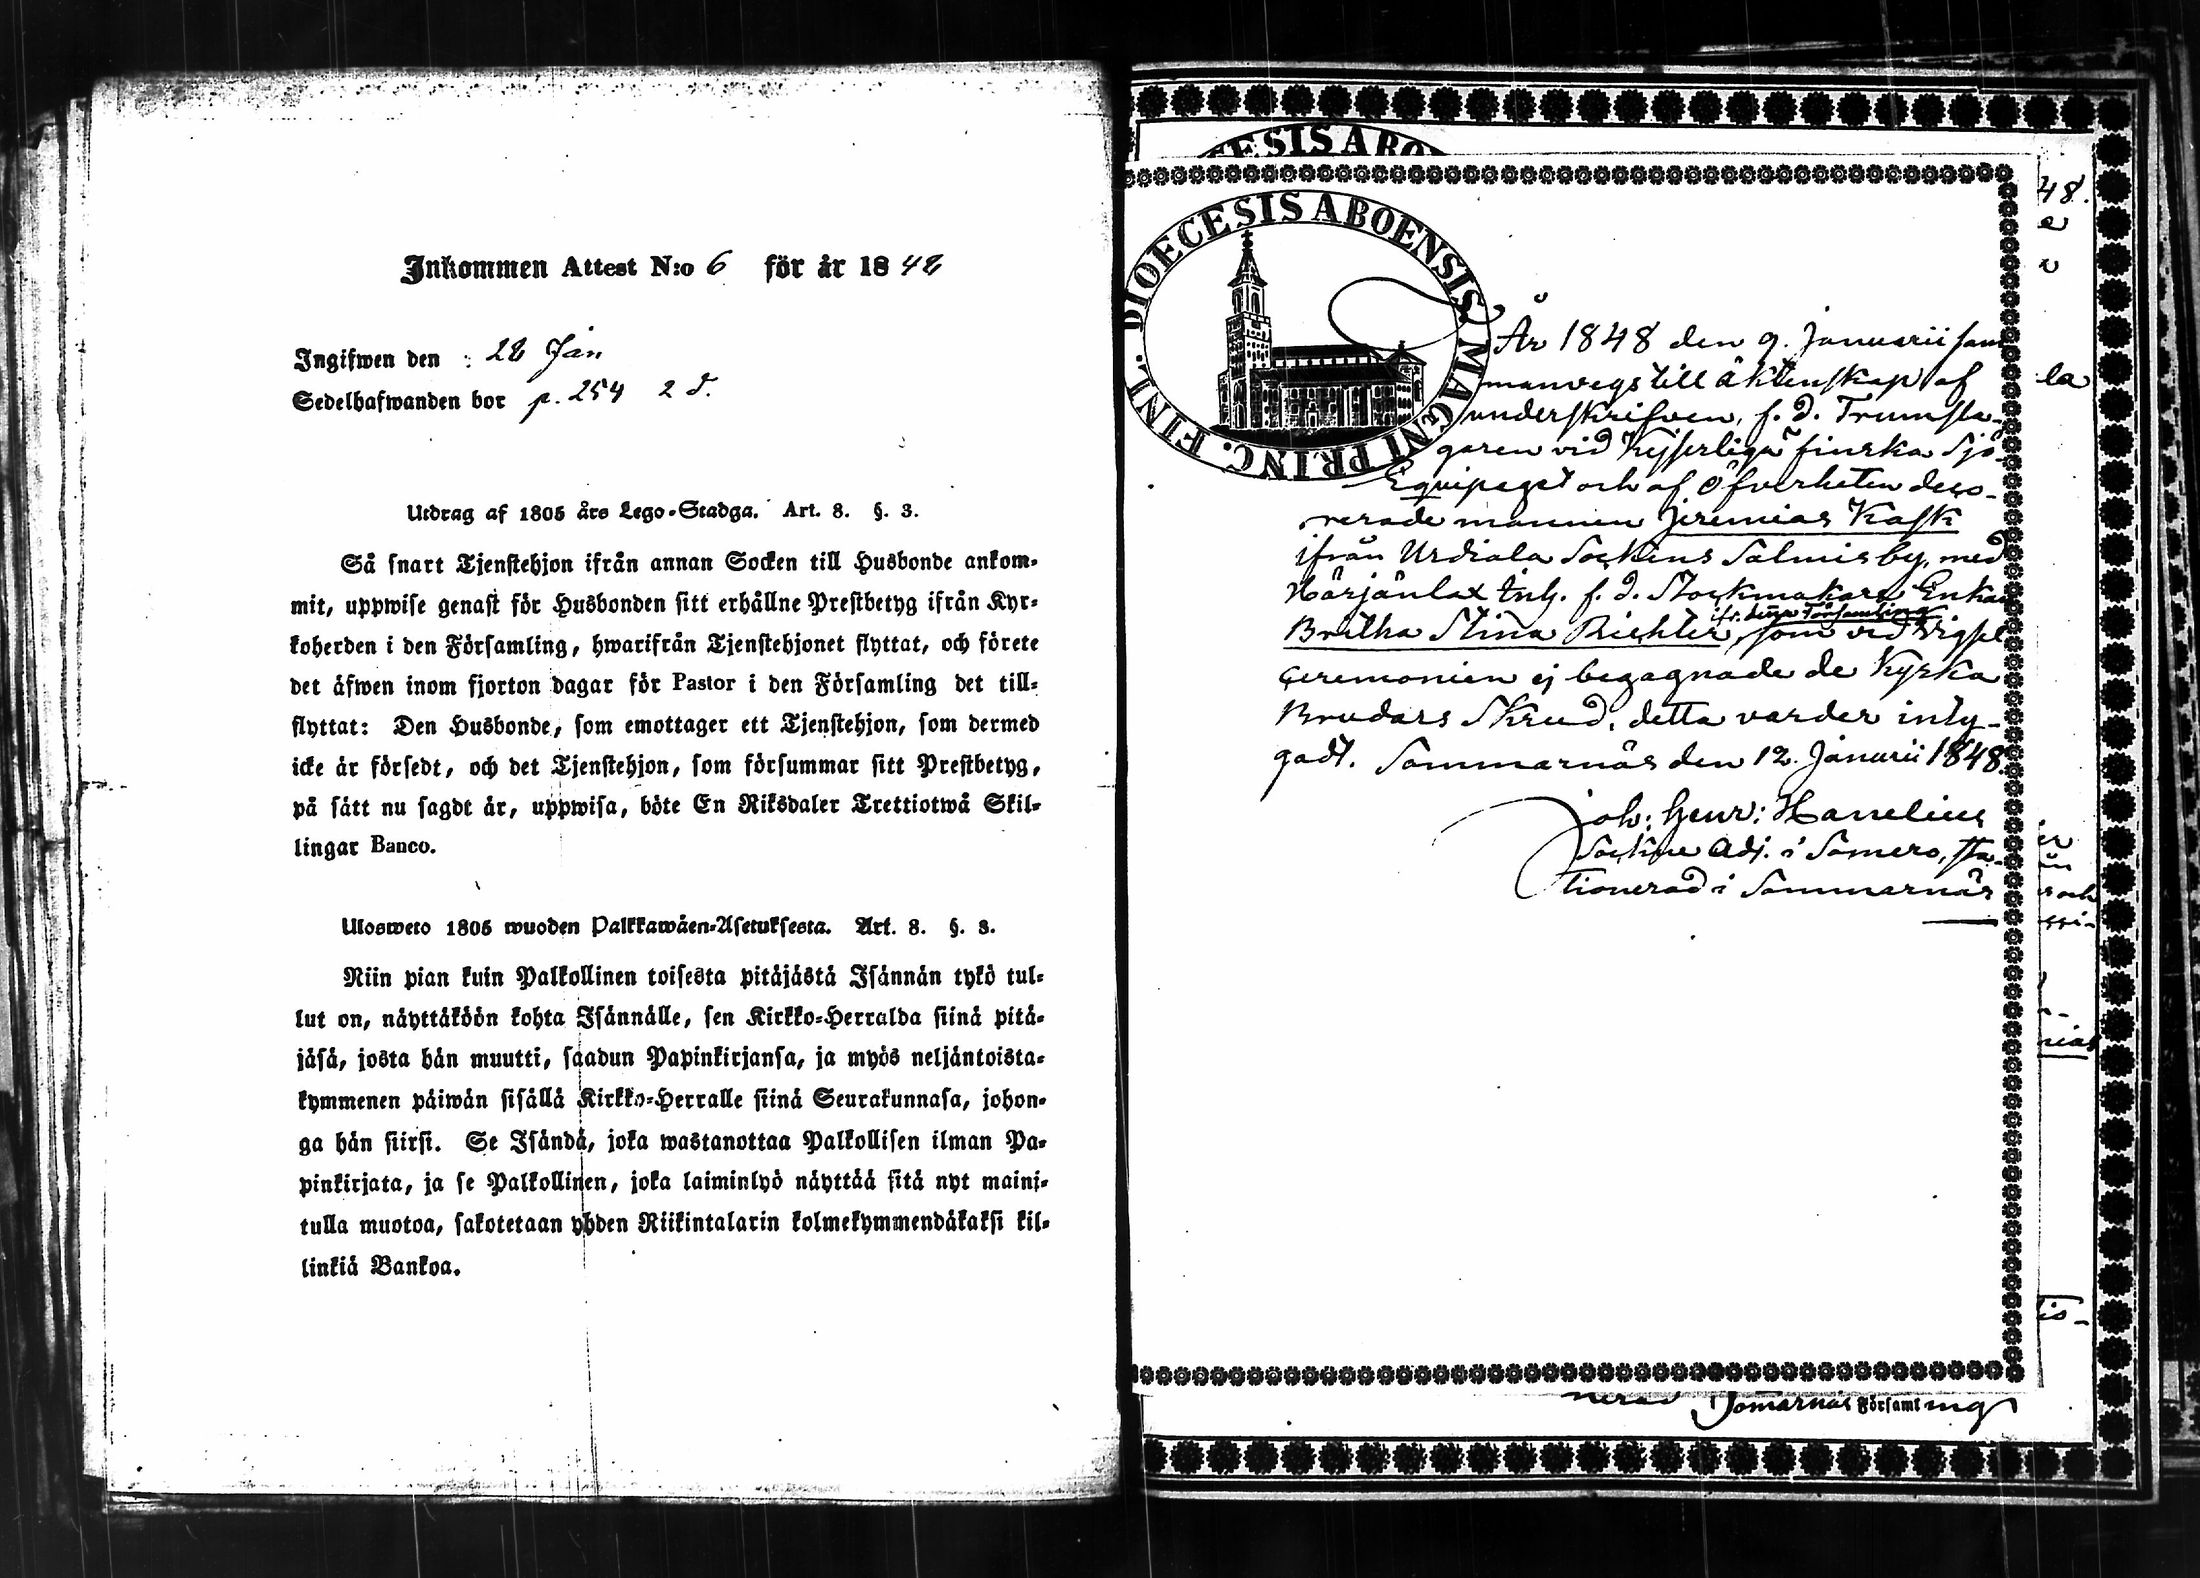 Inkommen Attest N:o 6 för år 1848
Ingifwen den : 28 Jan
Sedelhafwanden bor p. 254 2 d.
Utdrag af 1805 års Lego-Stadga. Art. 8. §. 3.
Så snart Tjenstehjon ifrån annan Socken till Husbonde ankom-
mit, uppwise genast för Husbonden sitt erhållne Prestbetyg ifrån Kyr-
koherden i den Församling, hwarifrån Tjenstehjonet flyttat, och förete
det äfwen inom fjorton dagar för Pastor i den Församling det till-
flyttat: Den Husbonde, som emottager ett Tjenstehjon, som dermed
icke är försedt, och det Tjenstehjon, som försummar sitt Prestbetyg,
på sätt nu sagdt är, uppwisa, böte En Riksdaler Trettiotwå Skil-
lingar Banco.
Ulosweto 1805 wuoden Palkkawäen-Asetuksesta. Art. 8. §. 3.
Niin pian kuin Palkollinen toisesta pitäjästä Isännän tykö tul-
lut on, näyttäköön kohta Isännälle, sen Kirkko-Herralda siinä pitä-
jäsä, josta hän muutti, saadun Papinkirjansa, ja myös neljäntoista-
kymmenen päiwän sisällä Kirkko-Herralle siinä Seurakunnasa, johon-
ga hän siirsi. Se Isändä, joka wastanottaa Palkollisen ilman Pa-
pinkirjata, ja se Palkollinen, joka laiminlyö näyttää sitä nyt maini-
tulla muotoa, sakotetaan yhden Riikintalarin kolmekymmendäkaksi kil-
linkiä Bankoa.
DIOECESIS ABOENSIS MAGNI PRINC. FINL.
År 1848 den 9. Januarii sam
manvegs till äktenskap af
underskrifven, f. d. Trumsla-
garen vid Kejserliga finska Sjö
Equipaget och af Öfverheten deco-
rerade mannen Jeremias Kask
ifrån Urdiala Sockens Salmis by, med
Härjänlax Inh. f. d. Stockmakare Enkan
ifr. denna Församling
Britha Stina Richter, som vid Vigsel
ceremonien ej begagnade de Kyrka
Brudars Skrud, detta varder inty-
gadt. Sommarnäs den 12. Januarii 1848.
Joh: Henr: Hanelius
Sockne Adj. i Somero, sta-
tionerad i Sommarnäs
nerad Somarnäs Församling